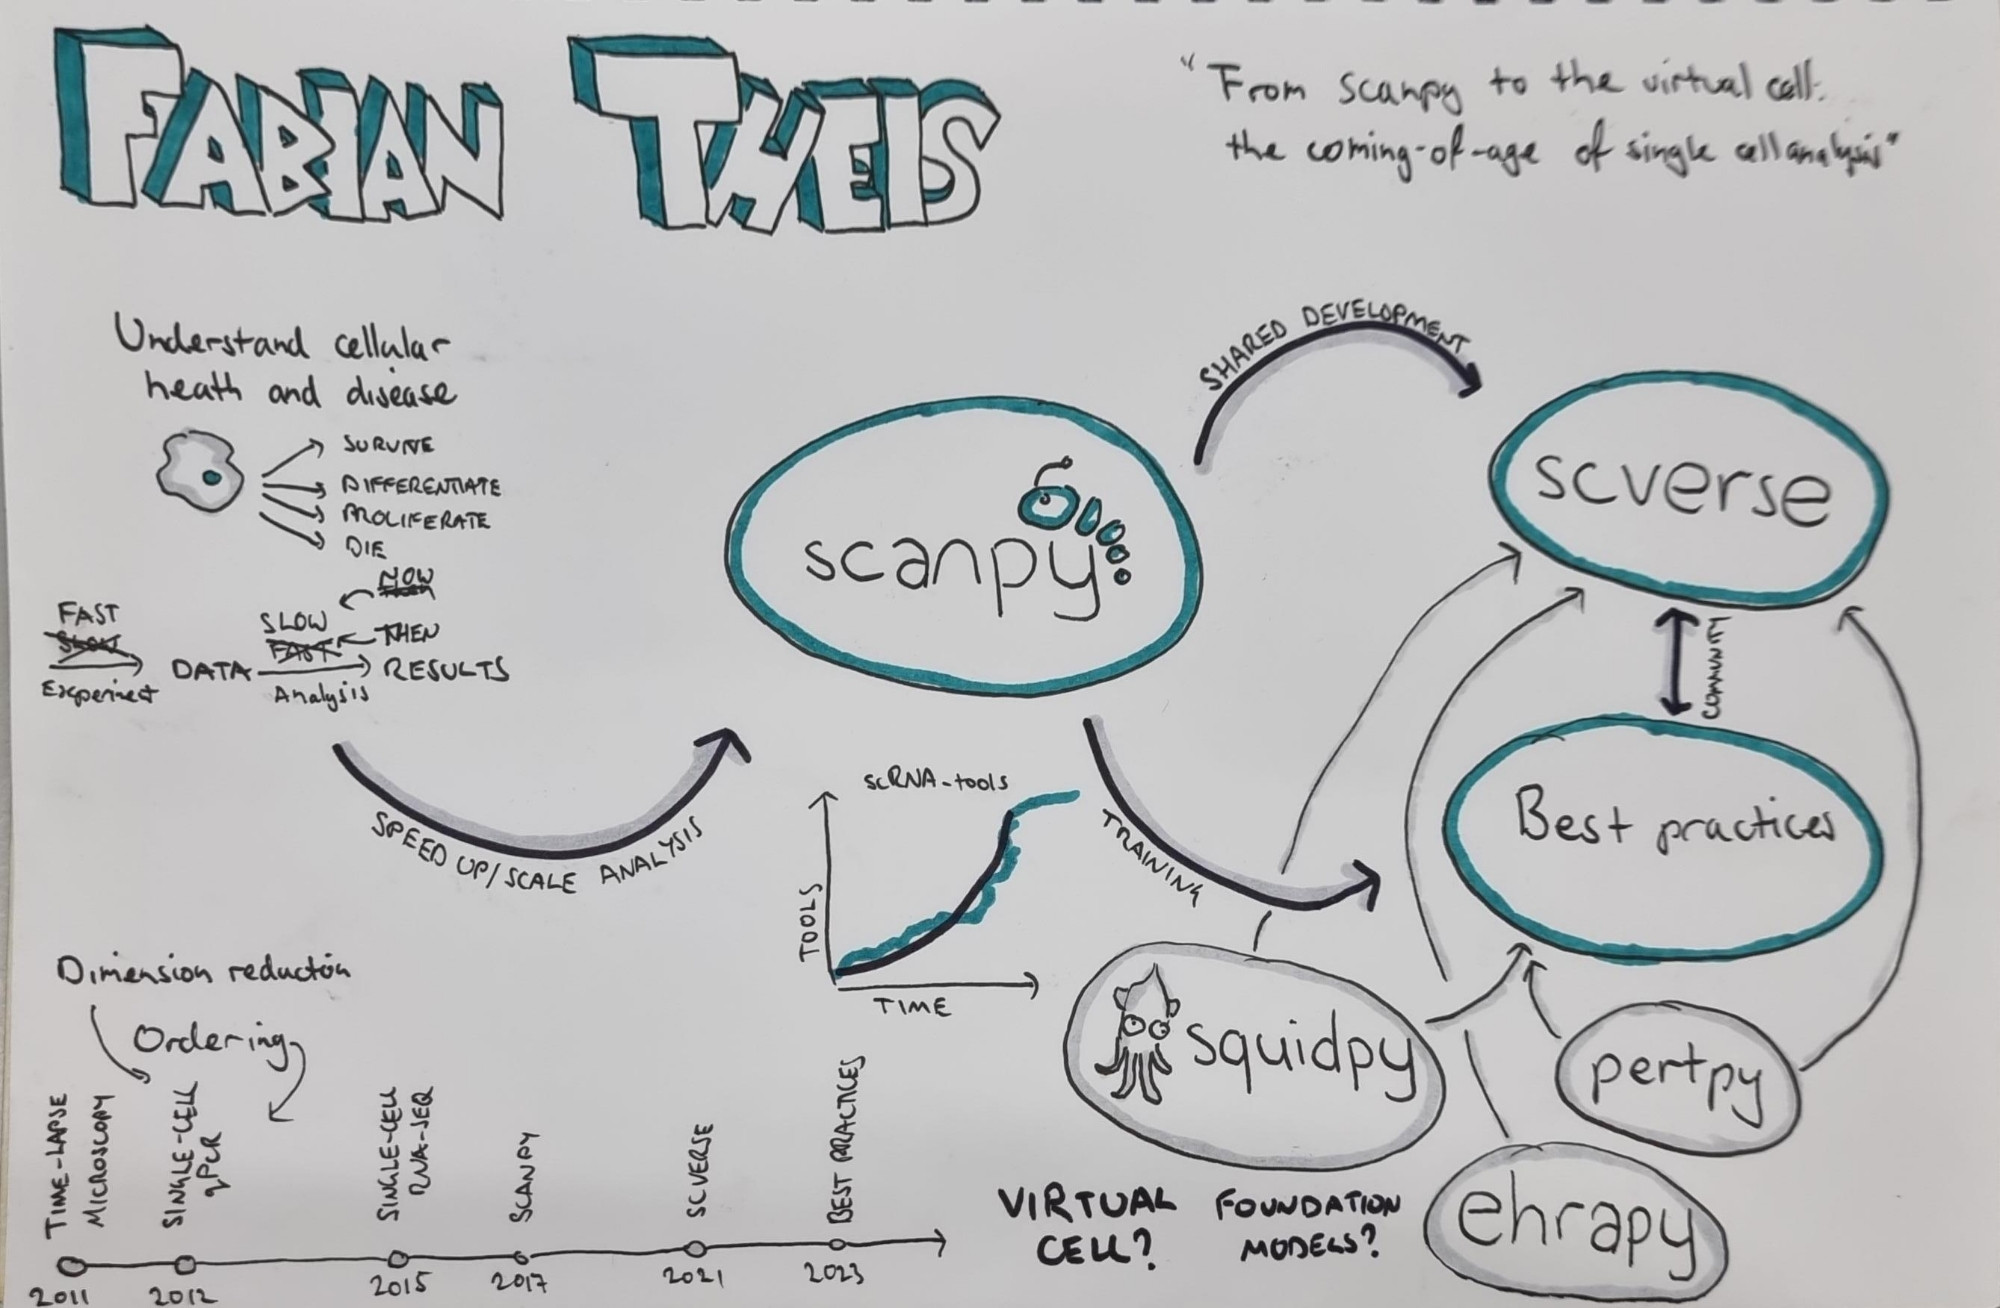 FABIAN THEIS
"From scanpy to the virtual cell.
the coming-of-age of single cell analysis"
Understand cellular
heath and disease
SURVIVE
DIFFERENTIATE
PROLIFERATE
DIE
NOW
FAST
SLOW
Experiment
DATA
SLOW
FAST
THEN
Analysis
RESULTS
SPEED UP/SCALE ANALYSIS
scanpy
SHARED DEVELOPMENT
scverse
COMMUNITY
Best practices
TRAINING
scRNA-tools
TOOLS
TIME
squidpy
pertpy
ehrapy
VIRTUAL
CELL?
FOUNDATION
MODELS?
Dimension reduction
Ordering
TIME-LAPSE
MICROSCOPY
SINGLE-CELL
qPCR
SINGLE-CELL
RNA-SEQ
SCANPY
SCVERSE
BEST PRACTICES
2011
2012
2015
2017
2021
2023